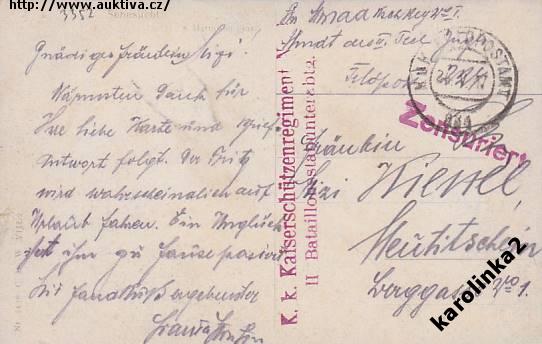 http://www.auktiva.cz/
3352
Gnädiges Fräulein Sizi!
Wärmsten Dank für
Ihre liebe Karte und Brief.
Antwort folgt. Der Fritz
wird wahrscheinlich auf
Urlaub fahren. Ein Unglück
ist ihm zu Hause passiert
Mit Handkuß ergebenster
K. k. Kaiserschützenregiment N
II Bataillonsstabsunterabt.
Feldpost
FELDPOSTAMT
Zensuriert
Fräulein
Sizi Kiessel,
Neutitschein
Berggasse No 1.
karolinka2